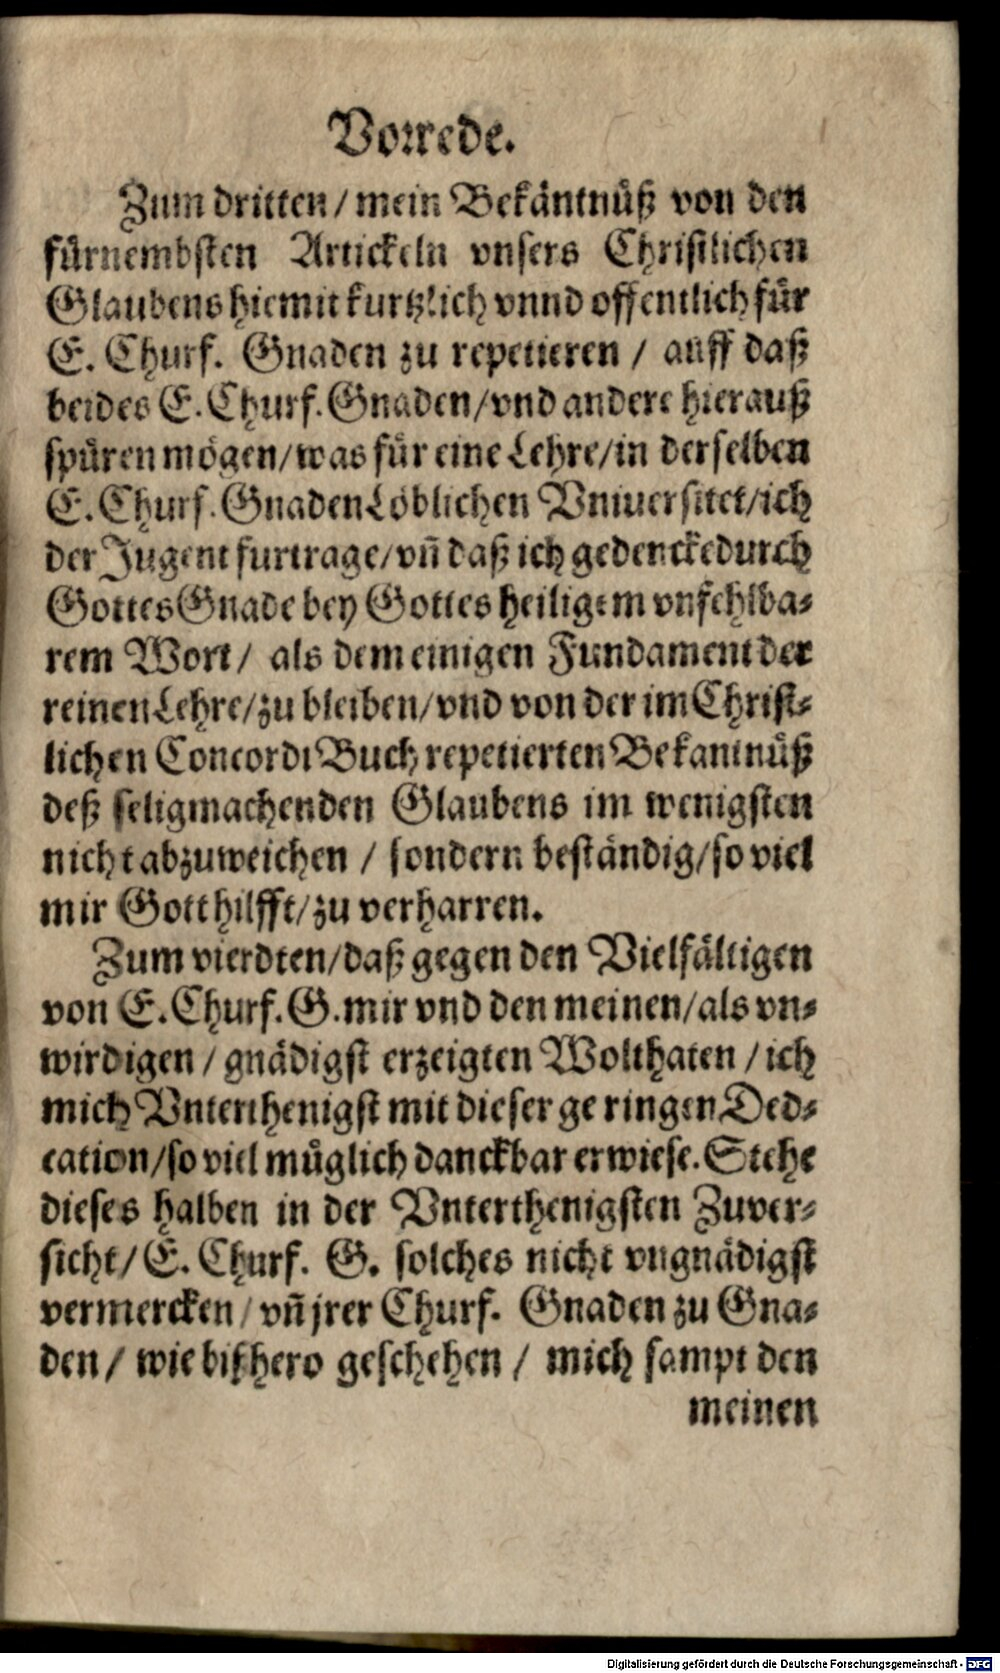 Vorrede.
Zum dritten / mein Bekäntnüß von den
fürnembsten Artickeln vnsers Christlichen
Glaubens hiemit kurtzlich vnnd offentlich für
E. Churf. Gnaden zu repetieren / auff daß
beides E. Churf. Gnaden/vnd andere hierauß
spüren mögen/was für eine Lehre/in derselben
E. Churf. Gnaden Löblichen Vniuersitet/ich
der Jugent furtrage/vñ daß ich gedencke durch
Gottes Gnade bey Gottes heiligem vnfehlba-
rem Wort/ als dem einigen Fundament der
reinen Lehre/zu bleiben/vnd von der im Christ-
lichen Concordi Buch repetierten Bekantnüß
deß seligmachenden Glaubens im wenigsten
nicht abzuweichen / sondern beständig/so viel
mir Gott hilfft/zu verharren.
Zum vierdten/daß gegen den Vielfältigen
von E. Churf. G. mir vnd den meinen/als vn-
wirdigen / gnädigst erzeigten Wolthaten / ich
mich Vnterthenigst mit dieser geringen Ded-
cation/so viel müglich danckbar erwiese. Stehe
dieses halben in der Vnterthenigsten Zuver-
sicht/E. Churf. G. solches nicht vngnädigst
vermercken/vñ jrer Churf. Gnaden zu Gna-
den/ wie bißhero geschehen / mich sampt den
meinen
Digitalisierung gefördert durch die Deutsche Forschungsgemeinschaft - DFG